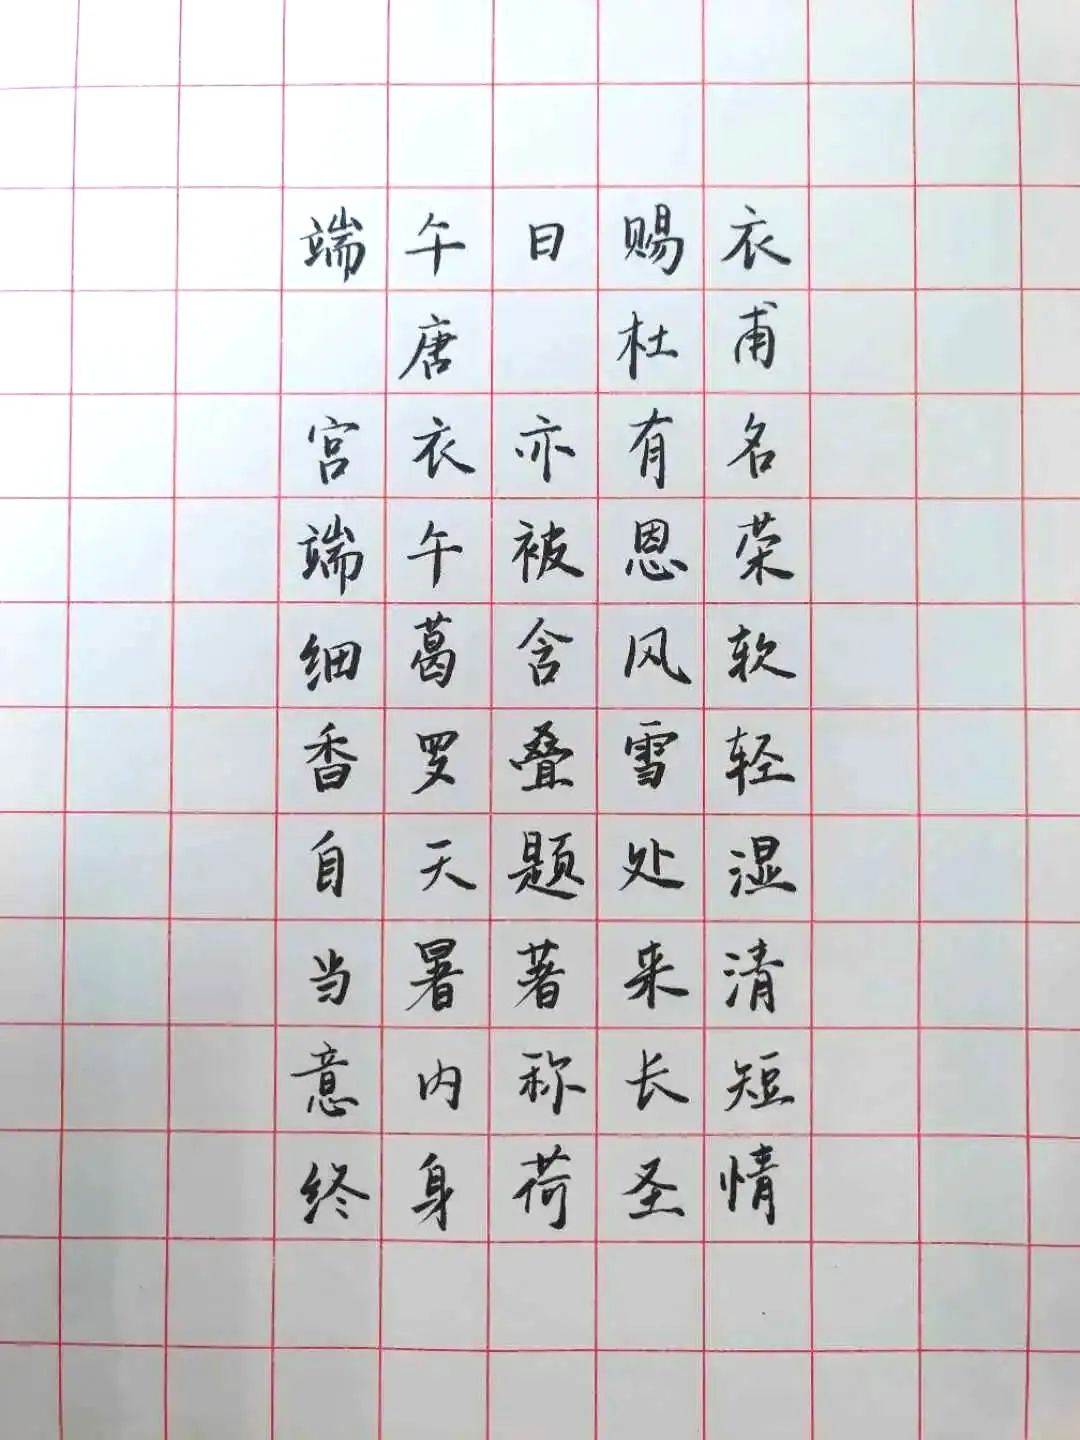 端午日赐衣
唐 杜甫
宫衣亦有名
端午被恩荣
细葛含风软
香罗叠雪轻
自天题处湿
当暑著来清
意内称长短
终身荷圣情